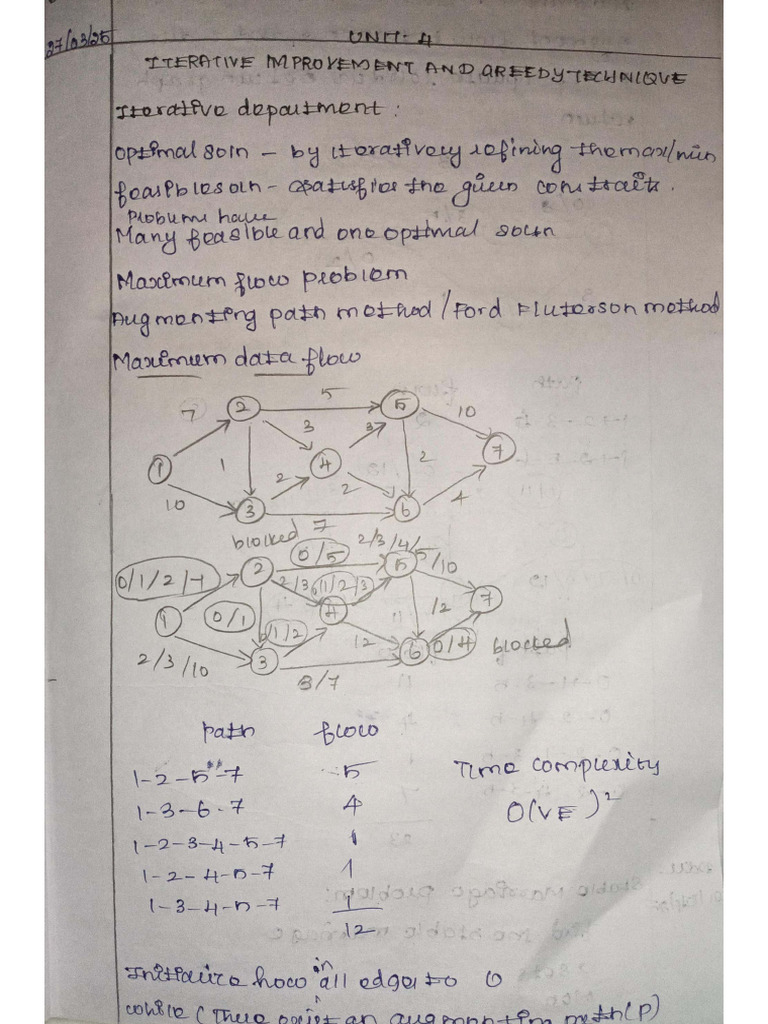 27/03/25
UNIT- 4
ITERATIVE IMPROVEMENT AND GREEDY TECHNIQUE
Iterative department :
Optimal soln - by iteratively refining the max/min
feasible soln - satisfies the given constraits.
Problems have
Many feasible and one optimal soln
Maximum flow problem
Augmenting path method / Ford Fluterson method
Maximum data flow
5
7 2 5 10
3 3
1 4 7
1 2 2 2
10 3 6 4
blocked 7
0/5 2/3/4/5/10
0/1/2/7 2 5
2/3 0/1/2/3
1 0/1 4 1 /2 7
0/1/2 12
2/3/10 3 6 0/4 blocked
3/7
path flow
1-2-5-7 5
1-3-6-7 4
1-2-3-4-5-7 1
1-2-4-5-7 1
1-3-4-5-7 1
12
Time complexity
O(VE)²
Initialize how in all edges to 0
while (There exist an augmenting path(P)